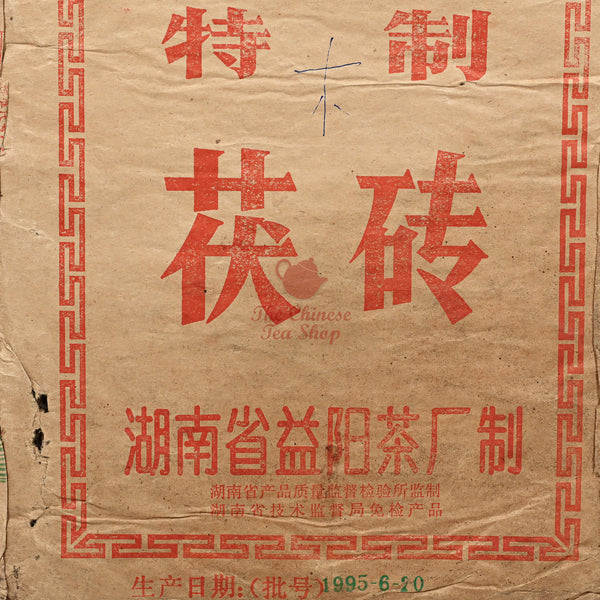 特 制
茯 砖
The Chinese
Tea Shop
湖南省益阳茶厂制
湖南省产品质量监督检验所监制
湖南省技术监督局免检产品
生产日期:(批号)1995-6-20